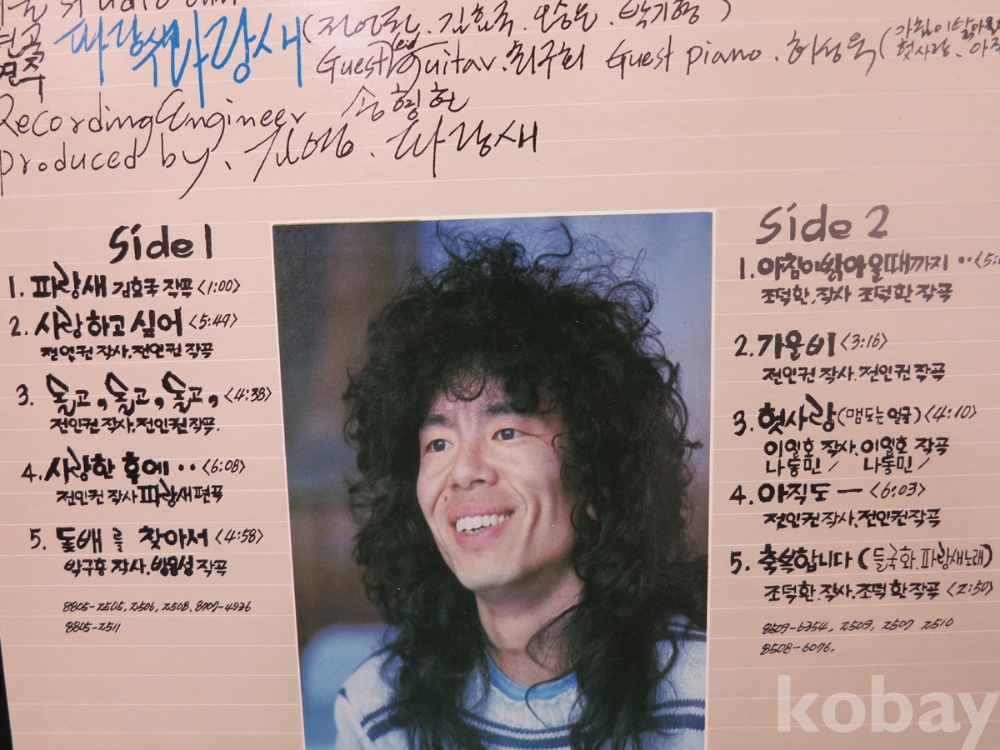 파랑새 파랑새 (전인권. 김효국. 오승은. 박기형)
Guest Guitar. 최구희 Guest piano. 허성욱 (아침이 밝아올
헛사랑. 아직
Recording Engineer 송형헌
produced by. 파랑새
Side 1
1. 파랑새 김효국 작곡 <1:00>
2. 사랑하고 싶어 <5:49>
전인권 작사. 전인권 작곡
3. 돌고, 돌고, 돌고, <4:38>
전인권 작사. 전인권 작곡.
4. 사랑한 후에 ·· <6:08>
전인권 작사 파랑새 편곡
5. 돛배를 찾아서 <4:58>
박구홍 작사. 방용성 작곡
8805-2505, 2506, 2508, 8707-4936
8805-2511
Side 2
1. 아침이 밝아 올때까지 ··
조덕환. 작사 조덕환 작곡
2. 가을비 <3:16>
전인권 작사. 전인권 작곡
3. 헛사랑 (맴도는 얼굴) <4:10>
이일호 작사. 이일호 작곡
나동민 / 나동민 /
4. 아직도 — <6:03>
전인권 작사. 전인권 작곡
5. 축복합니다 (들국화. 파랑새 노래)
조덕환. 작사. 조덕환 작곡 <2:50>
8509-6354, 2509, 2507 2510
8508-6076.
kobay